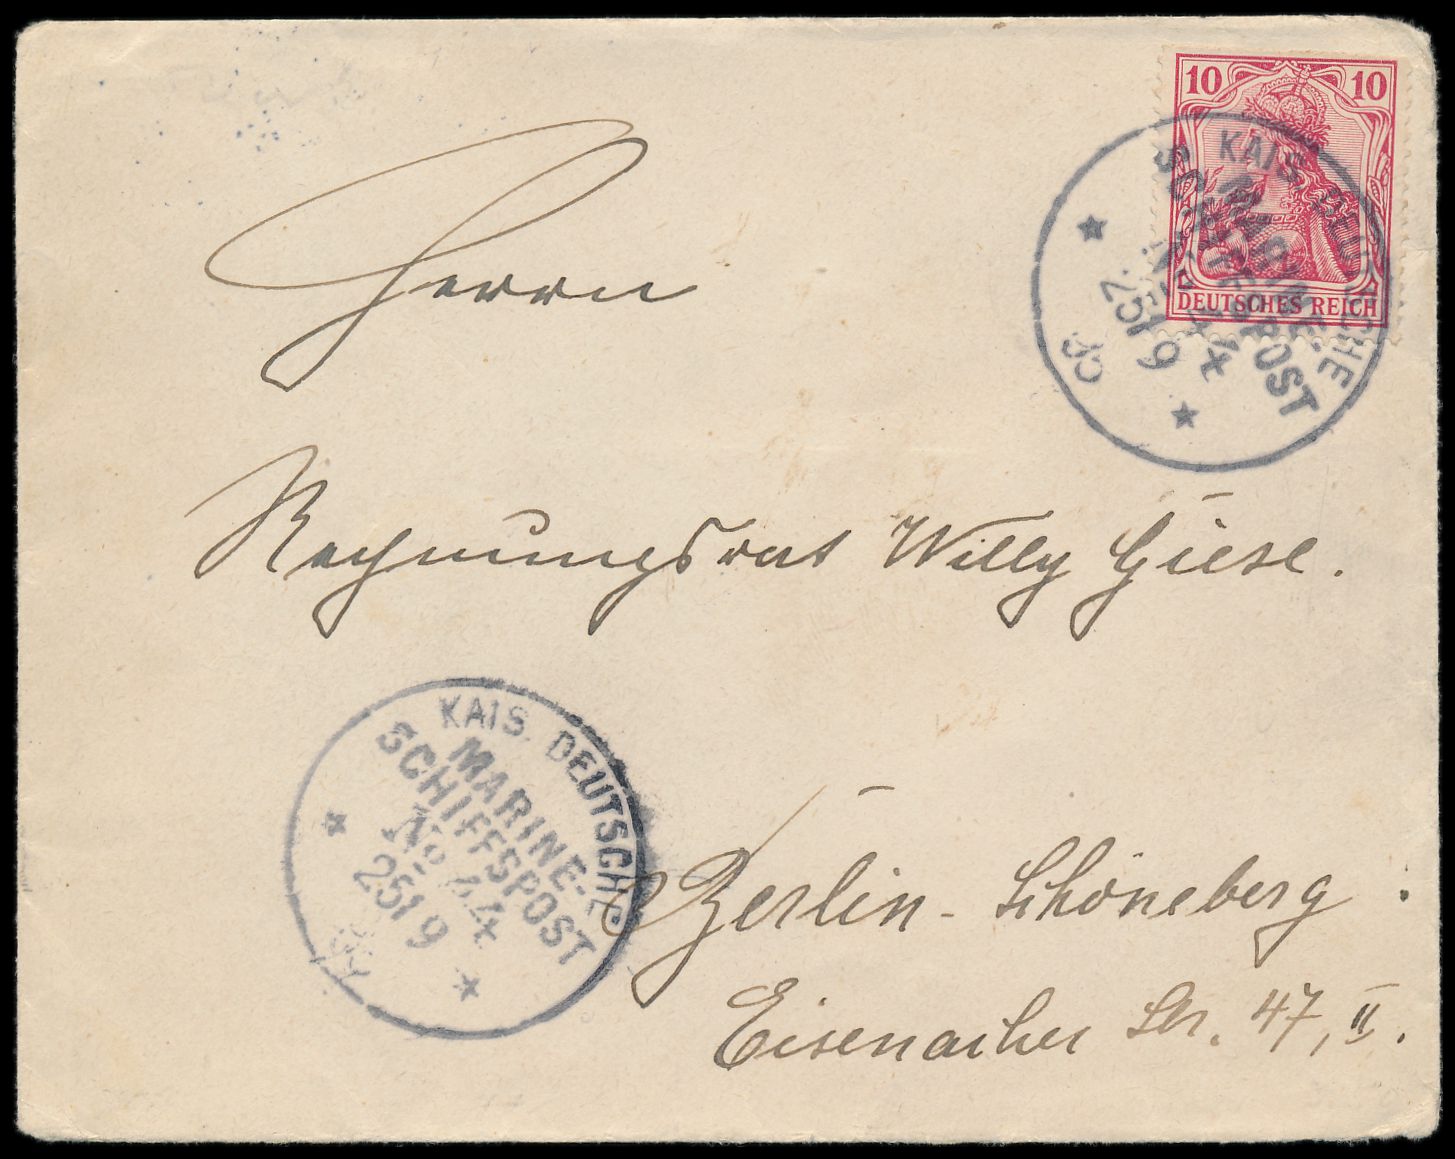 10 10
DEUTSCHES REICH
KAIS. DEUTSCHE
MARINE-
SCHIFFSPOST
No 44
25 1 9
Herrn
Rechnungsrat Willy Giese.
KAIS. DEUTSCHE
MARINE-
SCHIFFSPOST
No 44
25 1 9
Berlin-Schöneberg.
Eisenacher Str. 47, II.